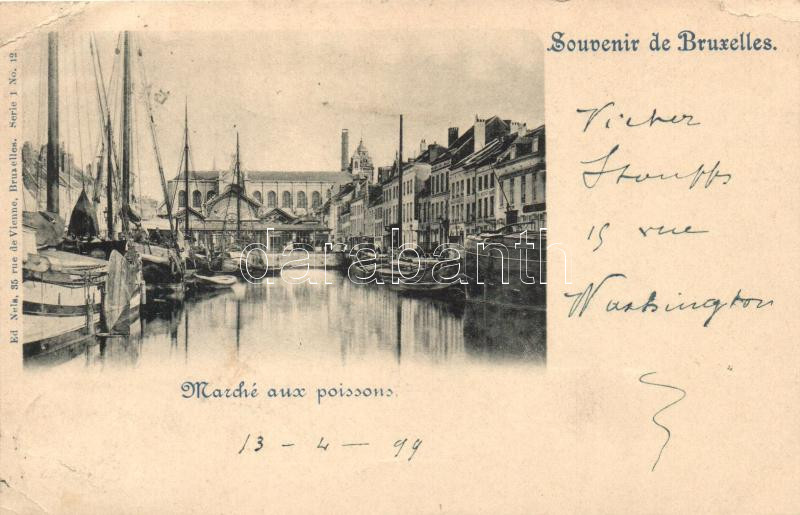 Souvenir de Bruxelles.
Ed Nels, 35 rue de Vienne, Bruxelles. Serie 1 No. 12
Victor
Stouffs
15 rue
Washington
darabanth
Marché aux poissons.
13 - 4 - 99